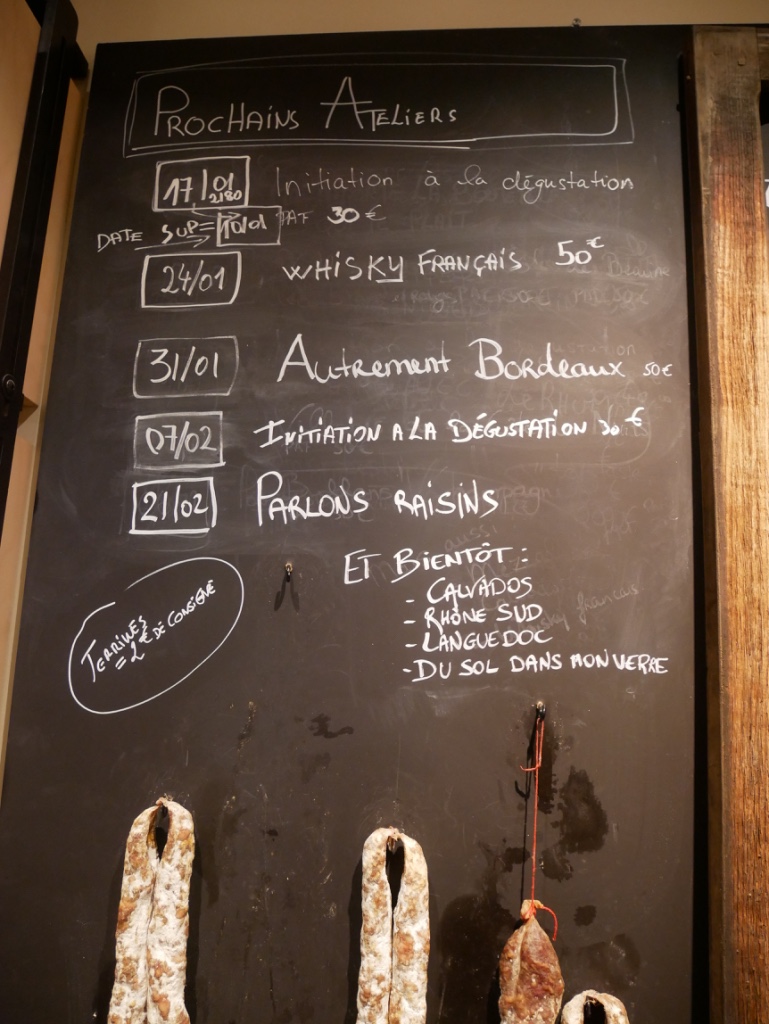 PROCHAINS ATELIERS
17/01 Initiation à la dégustation
PAF 30€
DATE SUP= 10/01
24/01 WHISKY FRANÇAIS 50€
31/01 AUTREMENT BORDEAUX 50€
07/02 INITIATION A LA DÉGUSTATION 30€
21/02 PARLONS RAISINS
ET BIENTÔT :
- CALVADOS
- RHÔNE SUD
- LANGUEDOC
- DU SOL DANS MON VERRE
TERRINES
= 2€ DE CONSIGNE